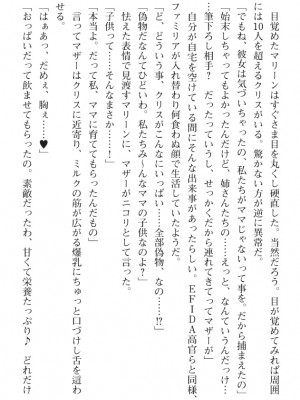 目覚めたマリーンはすぐさま目を丸くし硬直した。当然だろう。目が覚めてみれば周囲
には10人を超えるクリスがいる。驚かない方が逆に異常だ。
「でもね、彼女は気づいちゃったの、私たちがママじゃないって事を。だから捕まえたの」
「始末しちゃってもよかったんだけど、姉さんたちの……えっと、なんていうんだっけ…
…筆下ろし相手？　だったっていうし、せっかくだから連れてきてってマザーが」
自分が自宅を空けている間にそんな出来事があったらしい。EFIDA高官らと同様、
ファミリアが入れ替わり何食わぬ顔で生活していたようだ。
「ど、どういう事、クリスがこんなにいっぱい……全部偽物、なの……⁉」
「偽物だなんてひどいわ。私たちみーんなママの子供なのよ？」
怯えた表情で見渡すマリーンに、マザーがニコリとして言った。
「子供って……そんなまさか……！」
「本当よ。だって私、ママに育ててもらったんだもの」
言ってマザーはクリスに近寄り、ミルクの筋が広がる爆乳にちゅっと口づけし舌を這わ
せる。
「はぁっ、だめぇ、胸ぇ……♥」
「おっぱいだって飲ませてもらったの。素敵だったわ、甘くて栄養たっぷり♪　どれだけ